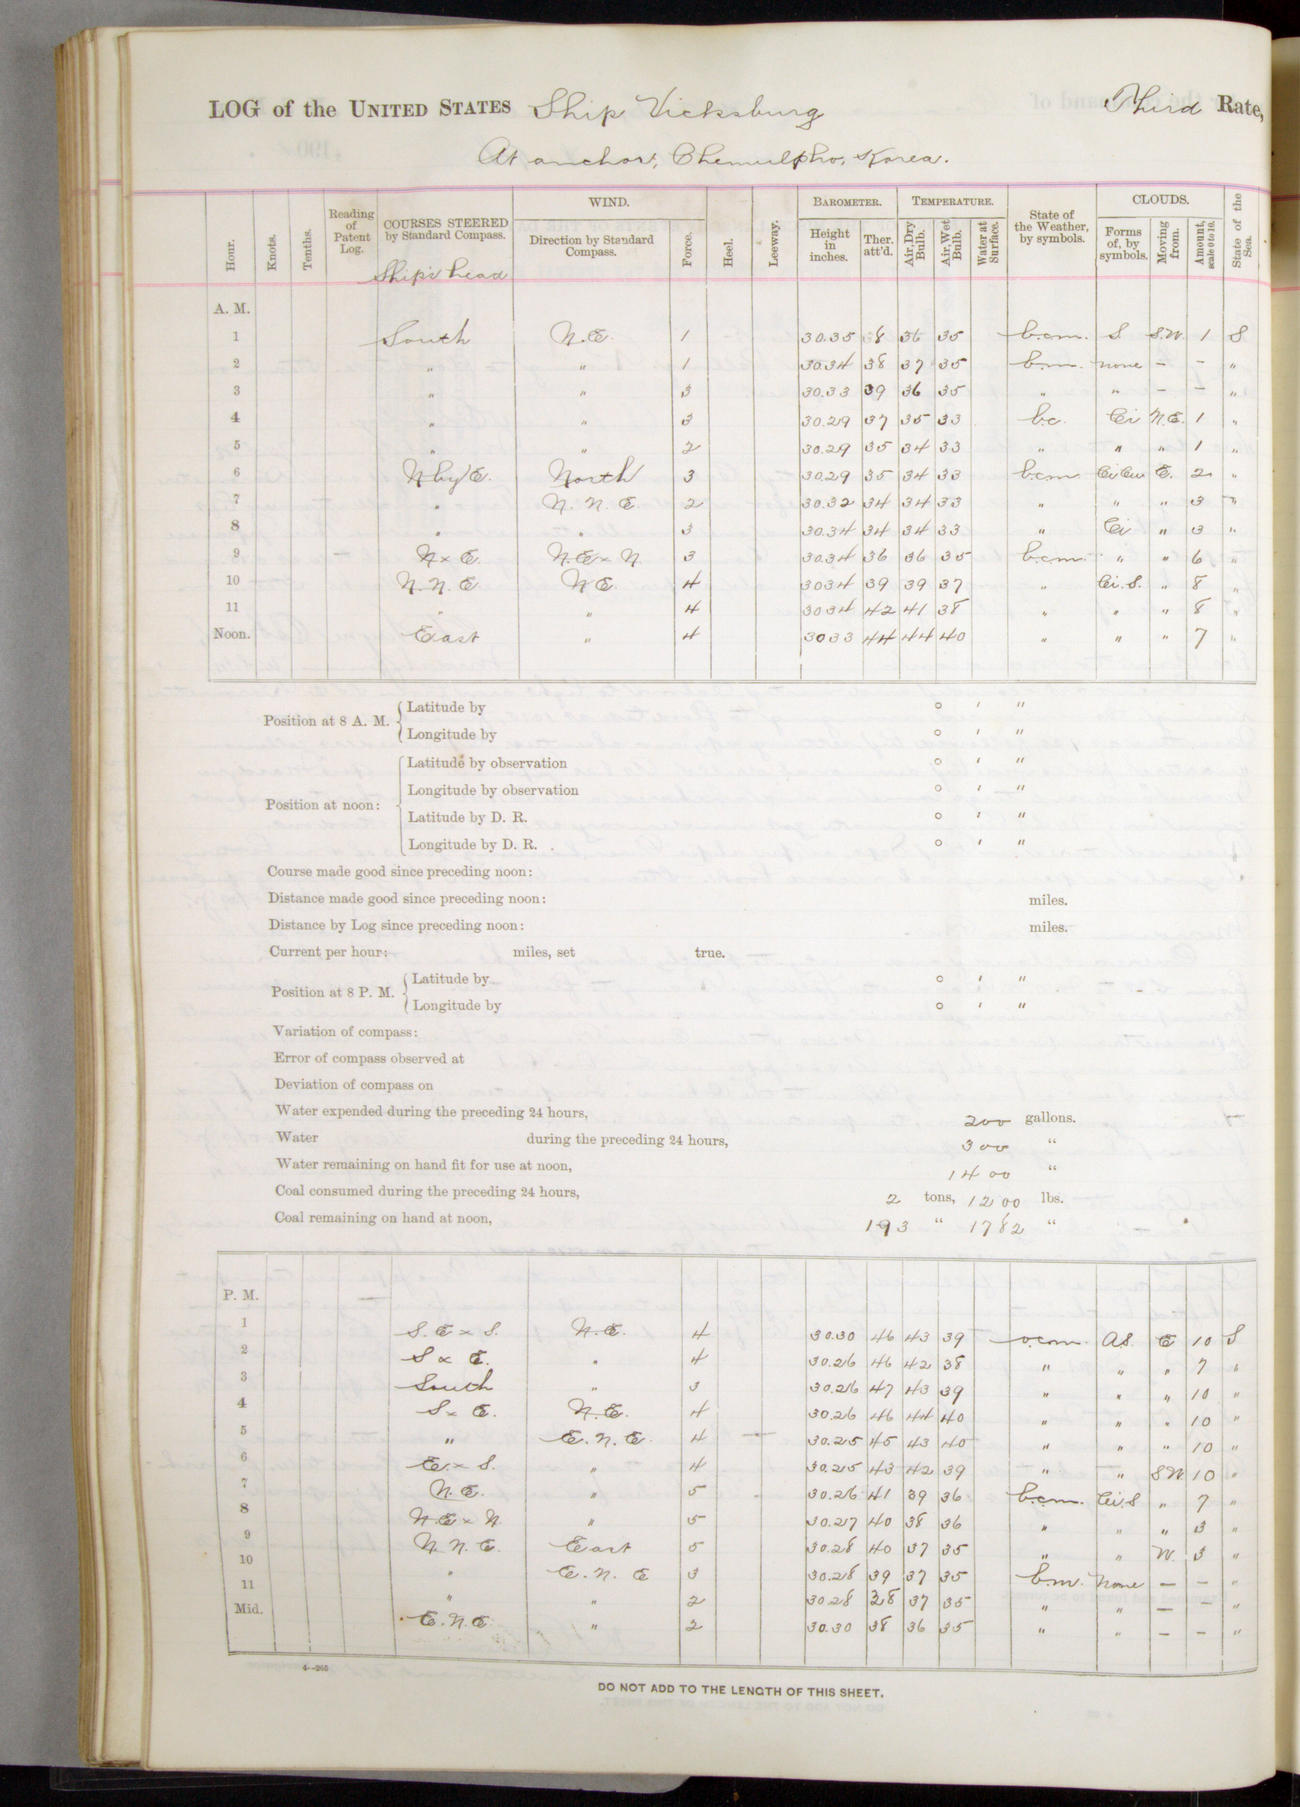 LOG of the UNITED STATES Ship Vicksburg Third Rate,
At anchor, Chemulpho, Korea.
Hour. Knots. Tenths. Reading of Patent Log. COURSES STEERED by Standard Compass. WIND. Direction by Standard Compass. Force. Heel. Leeway. BAROMETER. Height in inches. Ther. att'd. TEMPERATURE. Air, Dry Bulb. Air, Wet Bulb. Water at Surface. State of the Weather, by symbols. CLOUDS. Forms of, by symbols. Moving from. Amount, scale 0 to 10. State of the Sea.
Ship's head
A. M.
1 South N.E. 1 30.35 38 36 35 b.c.m. S S.W. 1 S
2 " " 1 30.34 38 37 35 b.m. none – – "
3 " " 3 30.33 39 36 35 " " – – "
4 " " 3 30.29 37 35 33 b.c. Ci N.E. 1 "
5 " " 2 30.29 35 34 33 " " " 1 "
6 N by E. North 3 30.29 35 34 33 b.c.m Ci Cu E. 2 "
7 " N. N. E. 2 30.32 34 34 33 " " " 3 "
8 " " 3 30.34 34 34 33 " Ci " 3 "
9 N x E. N.E x N. 3 30.34 36 36 35 b.c.m. " " 6 "
10 N. N. E N E. 4 30 34 39 39 37 " Ci. S. " 8 "
11 " " 4 30 34 42 41 38 " " " 8 "
Noon. East " 4 30 33 44 44 40 " " " 7 "
Position at 8 A. M. Latitude by ° ' "
Longitude by ° ' "
Position at noon: Latitude by observation ° ' "
Longitude by observation ° ' "
Latitude by D. R. ° ' "
Longitude by D. R. ° ' "
Course made good since preceding noon:
Distance made good since preceding noon: miles.
Distance by Log since preceding noon: miles.
Current per hour: miles, set true.
Position at 8 P. M. Latitude by ° ' "
Longitude by ° ' "
Variation of compass:
Error of compass observed at
Deviation of compass on
Water expended during the preceding 24 hours, 200 gallons.
Water during the preceding 24 hours, 300 "
Water remaining on hand fit for use at noon, 1400 "
Coal consumed during the preceding 24 hours, 2 tons, 1200 lbs.
Coal remaining on hand at noon, 193 " 1782 "
P. M.
1 S. E x S. N. E. 4 30.30 46 43 39 o.c.m. A.S. E 10 S
2 S x E. " 4 30.26 46 42 38 " " " 7 "
3 South " 3 30.26 47 43 39 " " " 10 "
4 S x E. N. E. 4 30.26 46 44 40 " " " 10 "
5 " E. N. E. 4 30.25 45 43 40 " " " 10 "
6 E x S. " 4 30.25 43 42 39 " " S W 10 "
7 N. E. " 5 30.26 41 39 36 b.c.m. Ci. S " 7 "
8 N. E x N. " 5 30.27 40 38 36 " " " 3 "
9 N. N. E. East 5 30.28 40 37 35 " " W. 3 "
10 " E. N. E 3 30.28 39 37 35 b.m. None – – "
11 " " 2 30 28 38 37 35 " " – – "
Mid. E. N. E. " 2 30.30 38 36 35 " " – – "
4—265
DO NOT ADD TO THE LENGTH OF THIS SHEET.